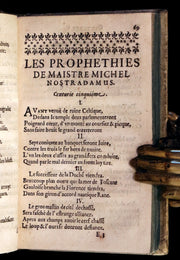 69
LES PROPHETHIES
DE MAISTRE MICHEL
NOSTRADAMUS.
Centurie cinquiéme.
I.
AVant venuë de ruine Celtique,
Dedans le temple deux parlementeront
Poignard cœur, d'vn monté au coursier & picque,
Sans faire bruit le grand enterreront
II.
Sept coniurez au banquet feront luire,
Contre les trois le fer hors de nauire
L'vn les deux classes au grand fera conduire,
Quand par le mail. Dernier au front luy tire.
III.
Le successeur de la Duché viendra
Beaucoup plus outre que la mer de Toscane
Gauloise branche la Florence tiendra,
Dans son giron d'accord nautique Rane.
IV.
Le gros mastin de cité dechassé,
Sera fasché de l'estrange alliance.
Apres aux champs auoir le cerf chassé
Le loup & l'ours se donront defiance.